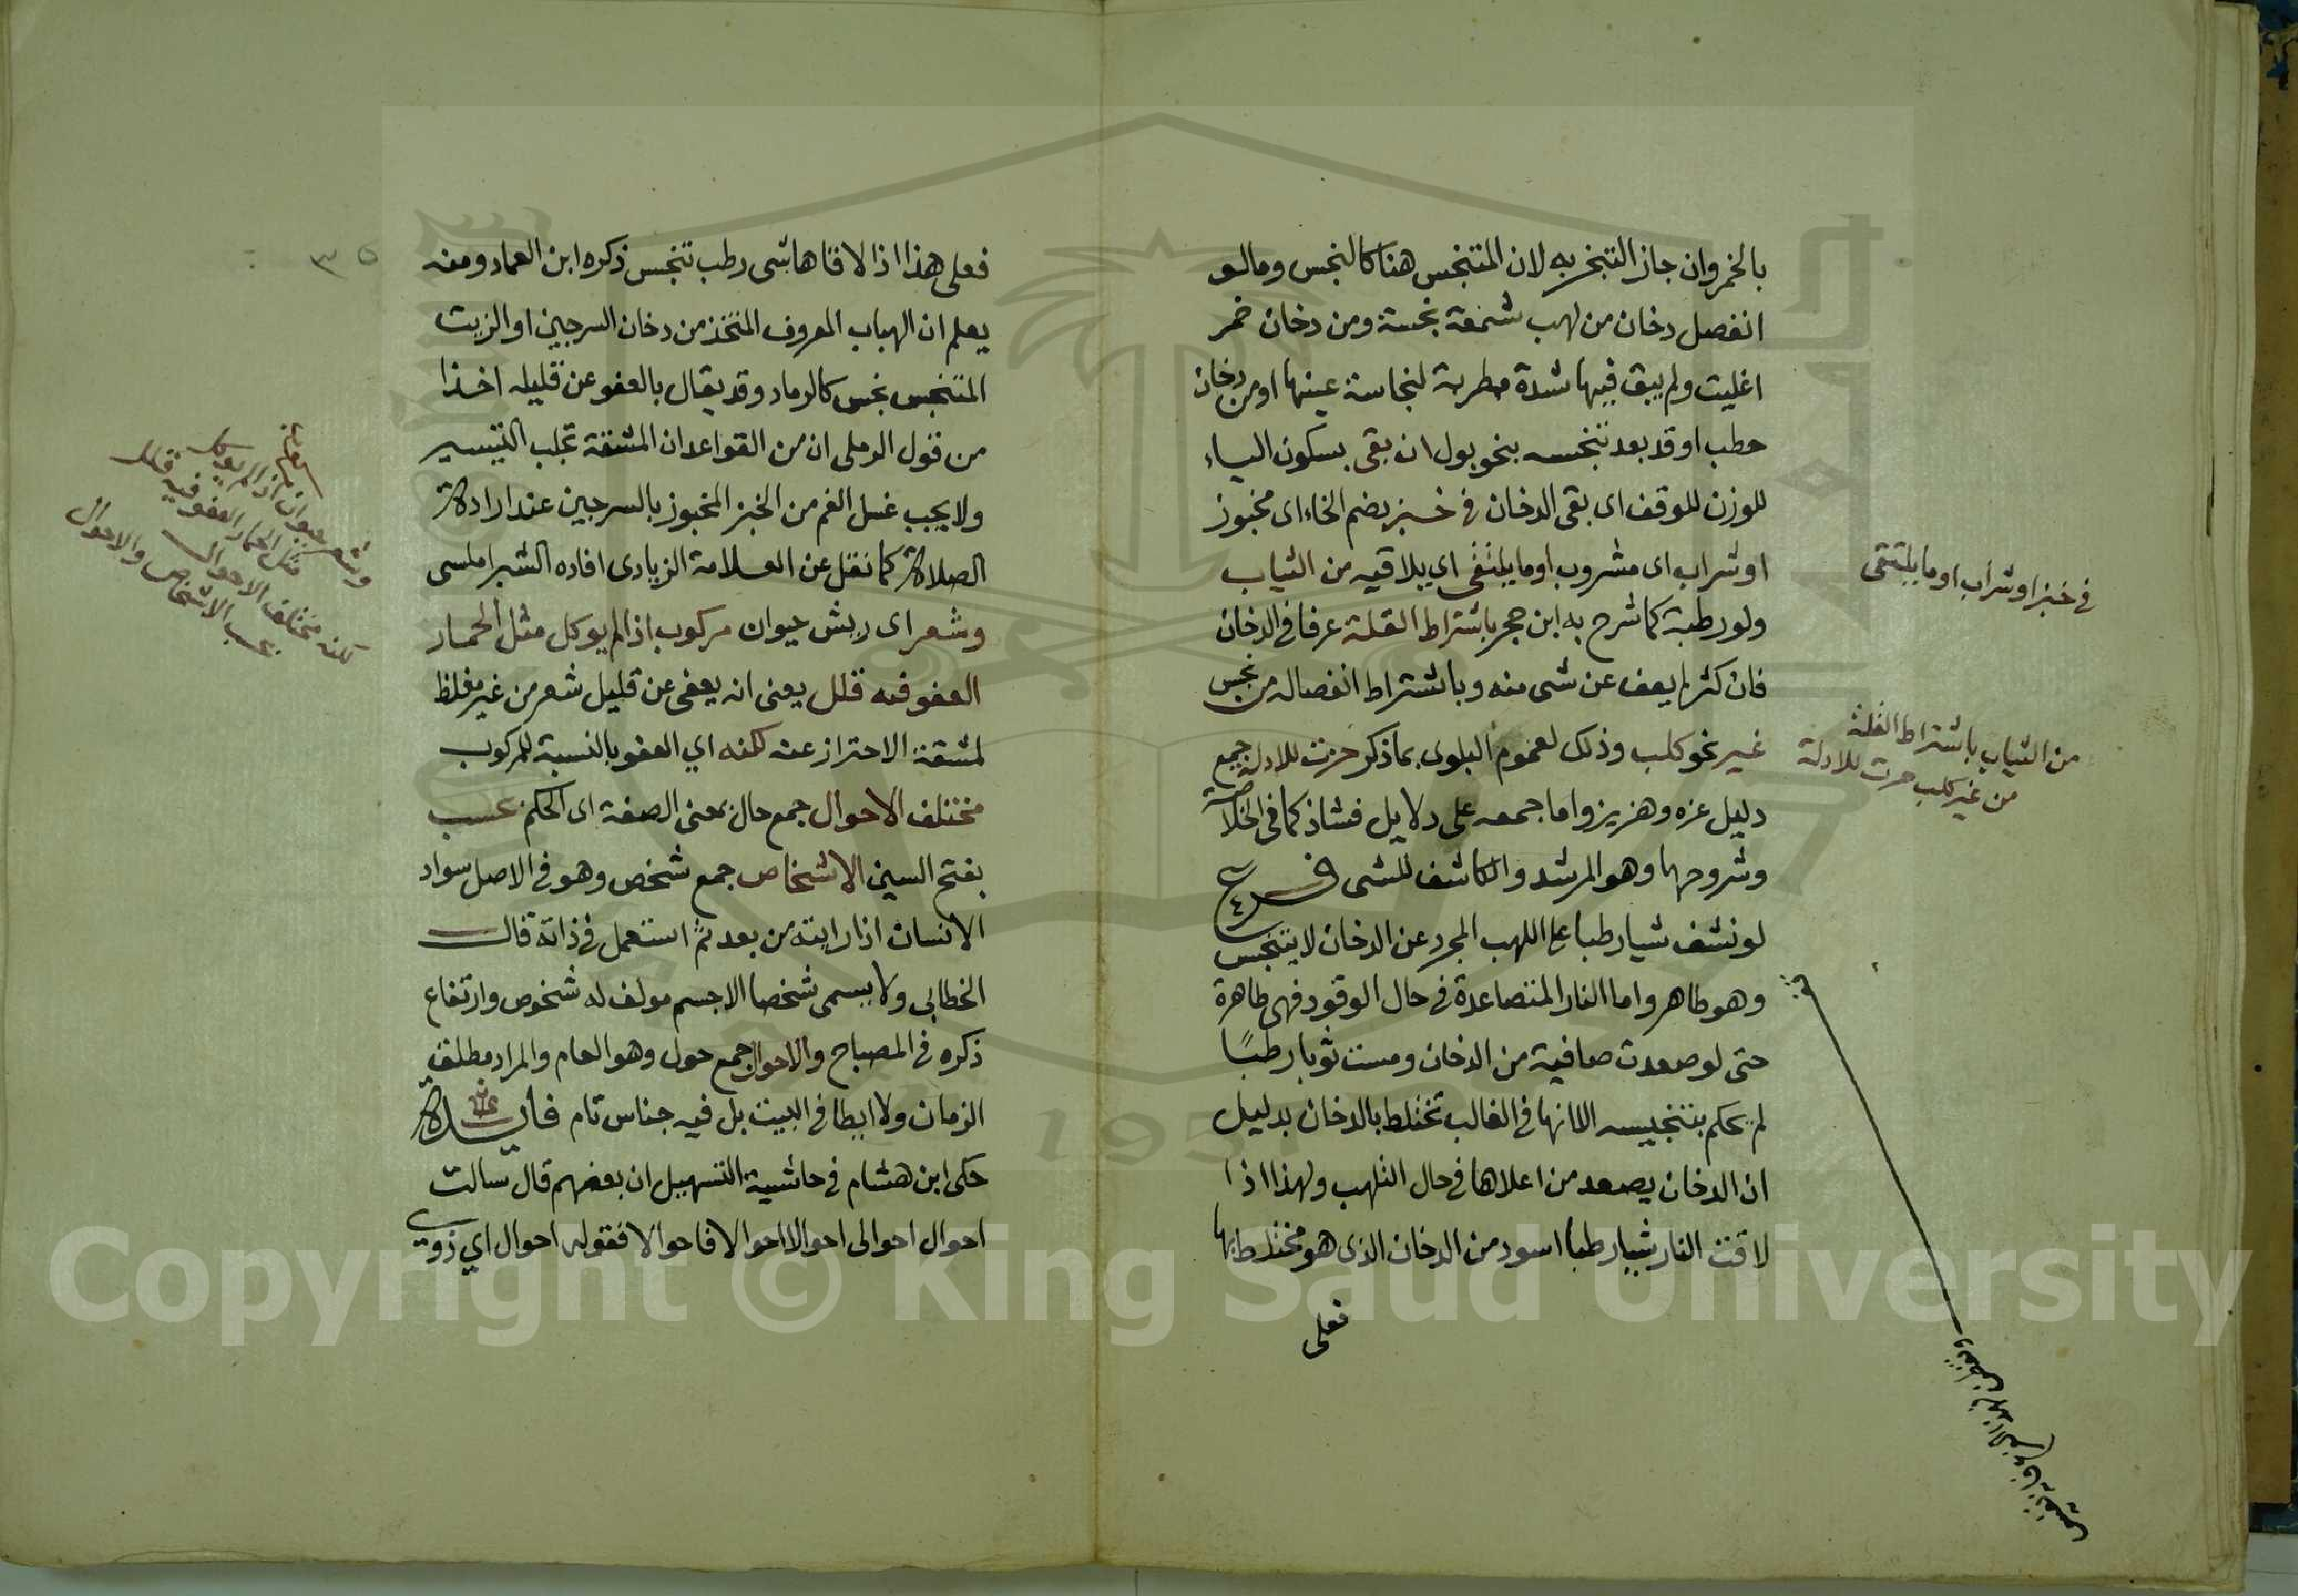 بالخمر وان جاز التبخر به لان المتنجس هنا كالنجس ومالو
انفصل دخان من لهب شمعة نجسة ومن دخان خمر
اغليت ولم يبق فيها شدة مطربة لنجاسة عينها او من دخان
حطب اوقد بعد تنجسه بنحو بول ان بقى بسكون الياء
للوزن للوقف اى بقى الدخان فى خبز بضم الخاء اى مخبوز
او شراب اى مشروب او ما يلتقى اي يلاقيه من الثياب
ولو رطبة كما شرح به ابن حجر باشتراط القلة عرفا فى الدخان
فان كثر لم يعف عن شى منه وباشتراط انفصاله من نجس
غير نحو كلب وذلك لعموم البلوى بما ذكر حرت للادلة جمع
دليل عزه وهزيز واما جمعه على دلايل فشاذ كما فى الخلاصة
وشروحها وهو المرشد والكاشف للشى فرع
لو نشف شيا رطبا على اللهب المجرد عن الدخان لا يتنجس
وهو طاهر واما النار المتصاعدة فى حال الوقود فهى طاهرة
حتى لو صعدت صافية من الدخان ومست ثوبا رطبًا
لم يحكم بتنجيسه الا انها فى الغالب تختلط بالدخان بدليل
ان الدخان يصعد من اعلاها فى حال التلهب ولهذا اذا
لاقت النار شيا رطبا اسود من الدخان الذى هو مختلط بها
فعلى
فى خبز او شراب او ما يلتقى
من الثياب باشتراط القلة
من غير كلب حرت للادلة
فعلى هذا اذا لاقاها شى رطب تنجس ذكره ابن العماد ومنه
يعلم ان الهباب المعروف المتخذ من دخان السرجين او الزيت
المتنجس نجس كالرماد وقد يقال بالعفو عن قليله اخذا
من قول الرملى ان من القواعد ان المشقة تجلب التيسير
ولا يجب غسل الفم من الخبز المخبوز بالسرجين عند ارادة
الصلاة كما نقل عن العلامة الزيادى افاده الشبراملسى
وشعر اى ريش حيوان مركوب اذا لم يوكل مثل الحمار
العفو فيه قلل يعنى انه يعفى عن قليل شعر من غير مغلظ
لمشقة الاحتراز عنه لكنه اي العفو بالنسبة للمركوب
مختلف الاحوال جمع حال بمعنى الصفة اى الحكم بحسب
بفتح السين الاشخاص جمع شخص وهو فى الاصل سواد
الانسان اذا رايته من بعد ثم استعمل فى ذاته قال
الخطابى ولا يسمى شخصا الا جسم مولف له شخوص وارتفاع
ذكره فى المصباح والاحوال جمع حول وهو العام والمراد مطلق
الزمان ولا ايطا فى البيت بل فيه جناس تام فايدة
حكى ابن هشام فى حاشية التسهيل ان بعضهم قال سالت
احوال احوالى احوالا احوالا فاحوالا فقوله احوال اي ذوي
وشعر حيوان اذا لم يوكل
مثل الحمار العفو فيه قلل
لكنه مختلف الاحوال
بحسب الاشخاص والاحوال